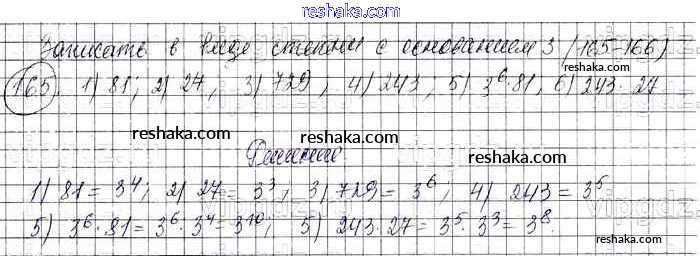 reshaka.com
Записать в виде степени с основанием 3 (165-166)
reshaka.com
165. 1) 81; 2) 27, 3) 729, 4) 243; 5) 3⁶·81, 6) 243·27
reshaka.com
reshaka.com
reshaka.com
reshaka.com
Решение
1) 81 = 3⁴; 2) 27 = 3³, 3) 729 = 3⁶; 4) 243 = 3⁵
5) 3⁶·81 = 3⁶·3⁴ = 3¹⁰; 5) 243·27 = 3⁵·3³ = 3⁸.
reshaka.com
reshaka.com
reshaka.com